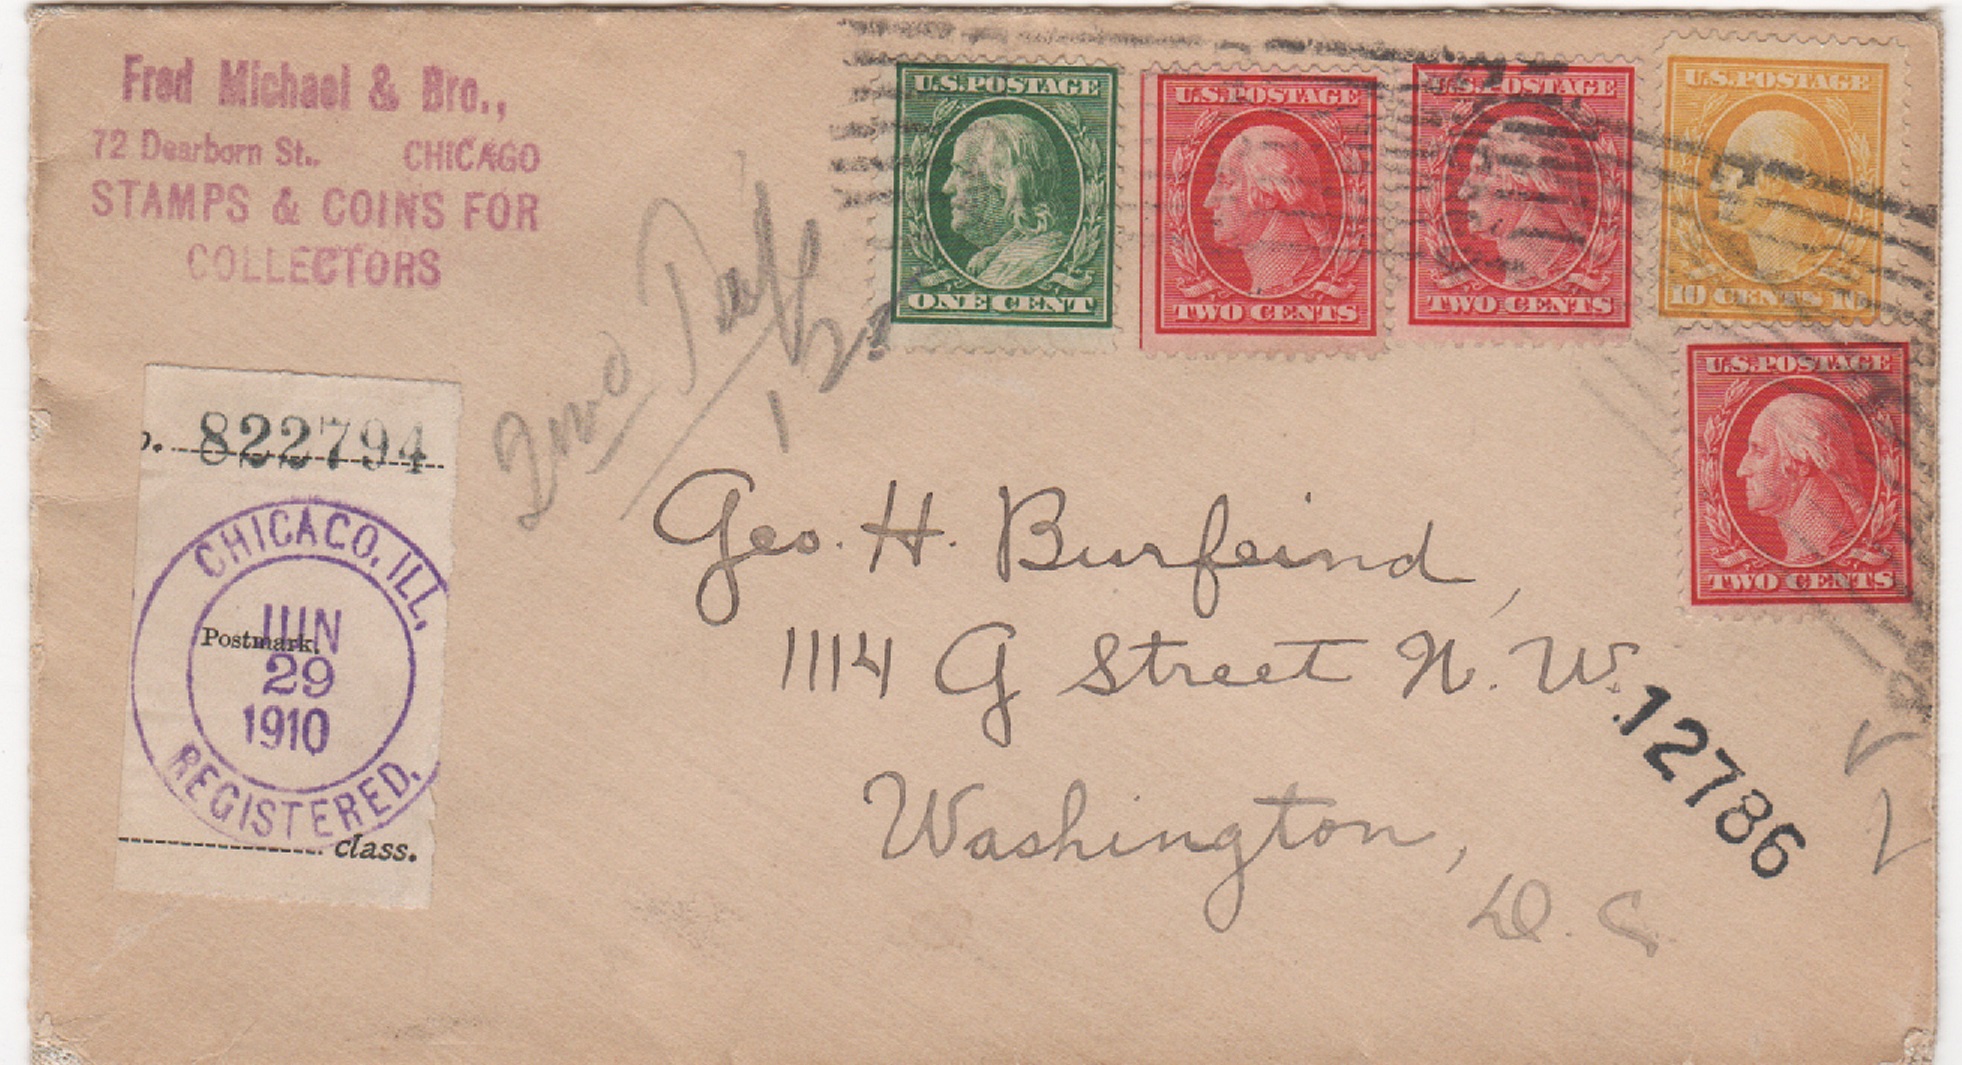 Fred Michael & Bro.,
72 Dearborn St., CHICAGO
STAMPS & COINS FOR
COLLECTORS
U.S. POSTAGE
ONE CENT
U.S. POSTAGE
TWO CENTS
U.S. POSTAGE
TWO CENTS
U.S. POSTAGE
10 CENTS 10
U.S. POSTAGE
TWO CENTS
o. 822794
CHICAGO, ILL.
JUN
Postmark.
29
1910
REGISTERED.
class.
Geo. H. Burfeind,
1114 G Street N. W.
Washington,
D. C.
12786